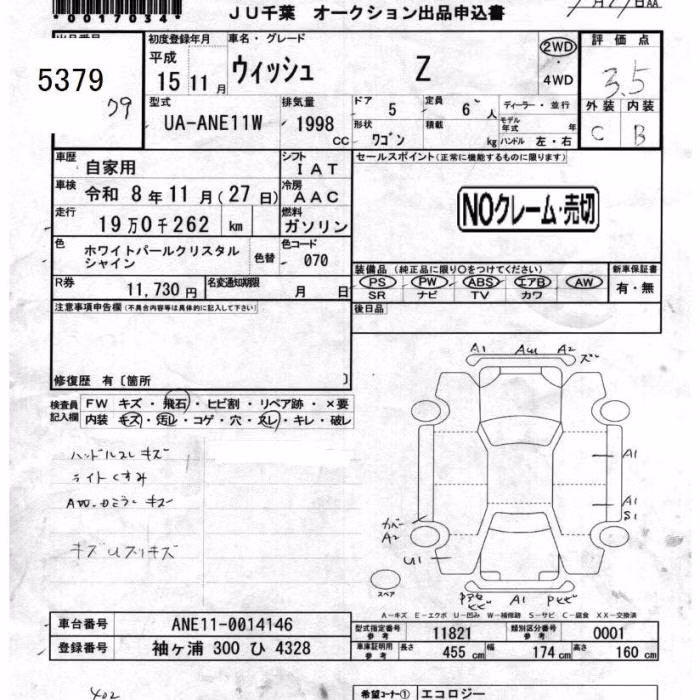 *0017034*
JU千葉 オークション出品申込書
5379
79
初度登録年月
平成
15 11 月
車名・グレード
ウィッシュ Z
2WD
・
4WD
評価点
3.5
外装 内装
C B
型式
UA-ANE11W
排気量
1998 cc
ドア
5
定員
6 人
形状
ワゴン
積載
kg
ディーラー・並行
モデル年式 年
ハンドル 左・右
車歴
自家用
シフト
IAT
車検
令和 8年 11月(27日)
冷房
AAC
走行
19万0千262 km
燃料
ガソリン
色
ホワイトパールクリスタル
シャイン
色替
色コード
070
R券
11,730円
名変通知期限
月 日
セールスポイント(正常に機能するものに限ります)
NOクレーム・売切
装備品 (純正品に限り○をつけてください)
PS ・ PW ・ ABS ・ エアB ・ AW
SR ナビ TV カワ
新車保証書
有・無
後日品
注意事項申告欄(不具合内容等は具体的に記入して下さい)
修復歴 有〔箇所 〕
検査員
記入欄
FW キズ・飛石・ヒビ割・リペア跡・×要
内装 キズ・汚レ・コゲ・穴・スレ・キレ・破レ
ハンドルスレ キズ
ライトくすみ
AW.ドアミラー キズ
キズUスリキズ
A1 AW A2 ズー
A1
A1
S1
カバー
A2
U1
スペア
A1
A-キズ E-エクボ U-凹み W-補修跡 S-サビ C-腐食 XX-交換済
車台番号
ANE11-0014146
登録番号
袖ヶ浦 300 ひ 4328
型式指定番号
参考
11821
類別区分番号
参考
0001
車庫証明用
参考
長さ
455 cm
幅
174 cm
高さ
160 cm
402
希望コーナー①
エコロジー